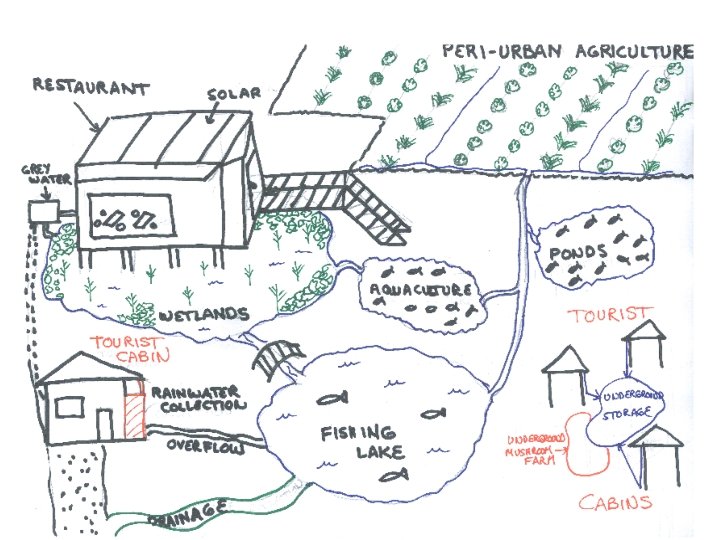 PERI-URBAN AGRICULTURE
RESTAURANT
SOLAR
GREY
WATER
PONDS
AQUACULTURE
WETLANDS
TOURIST
TOURIST
CABIN
RAINWATER
COLLECTION
UNDERGROUND
STORAGE
FISHING
LAKE
OVERFLOW
UNDERGROUND
MUSHROOM
FARM
CABINS
DRAINAGE